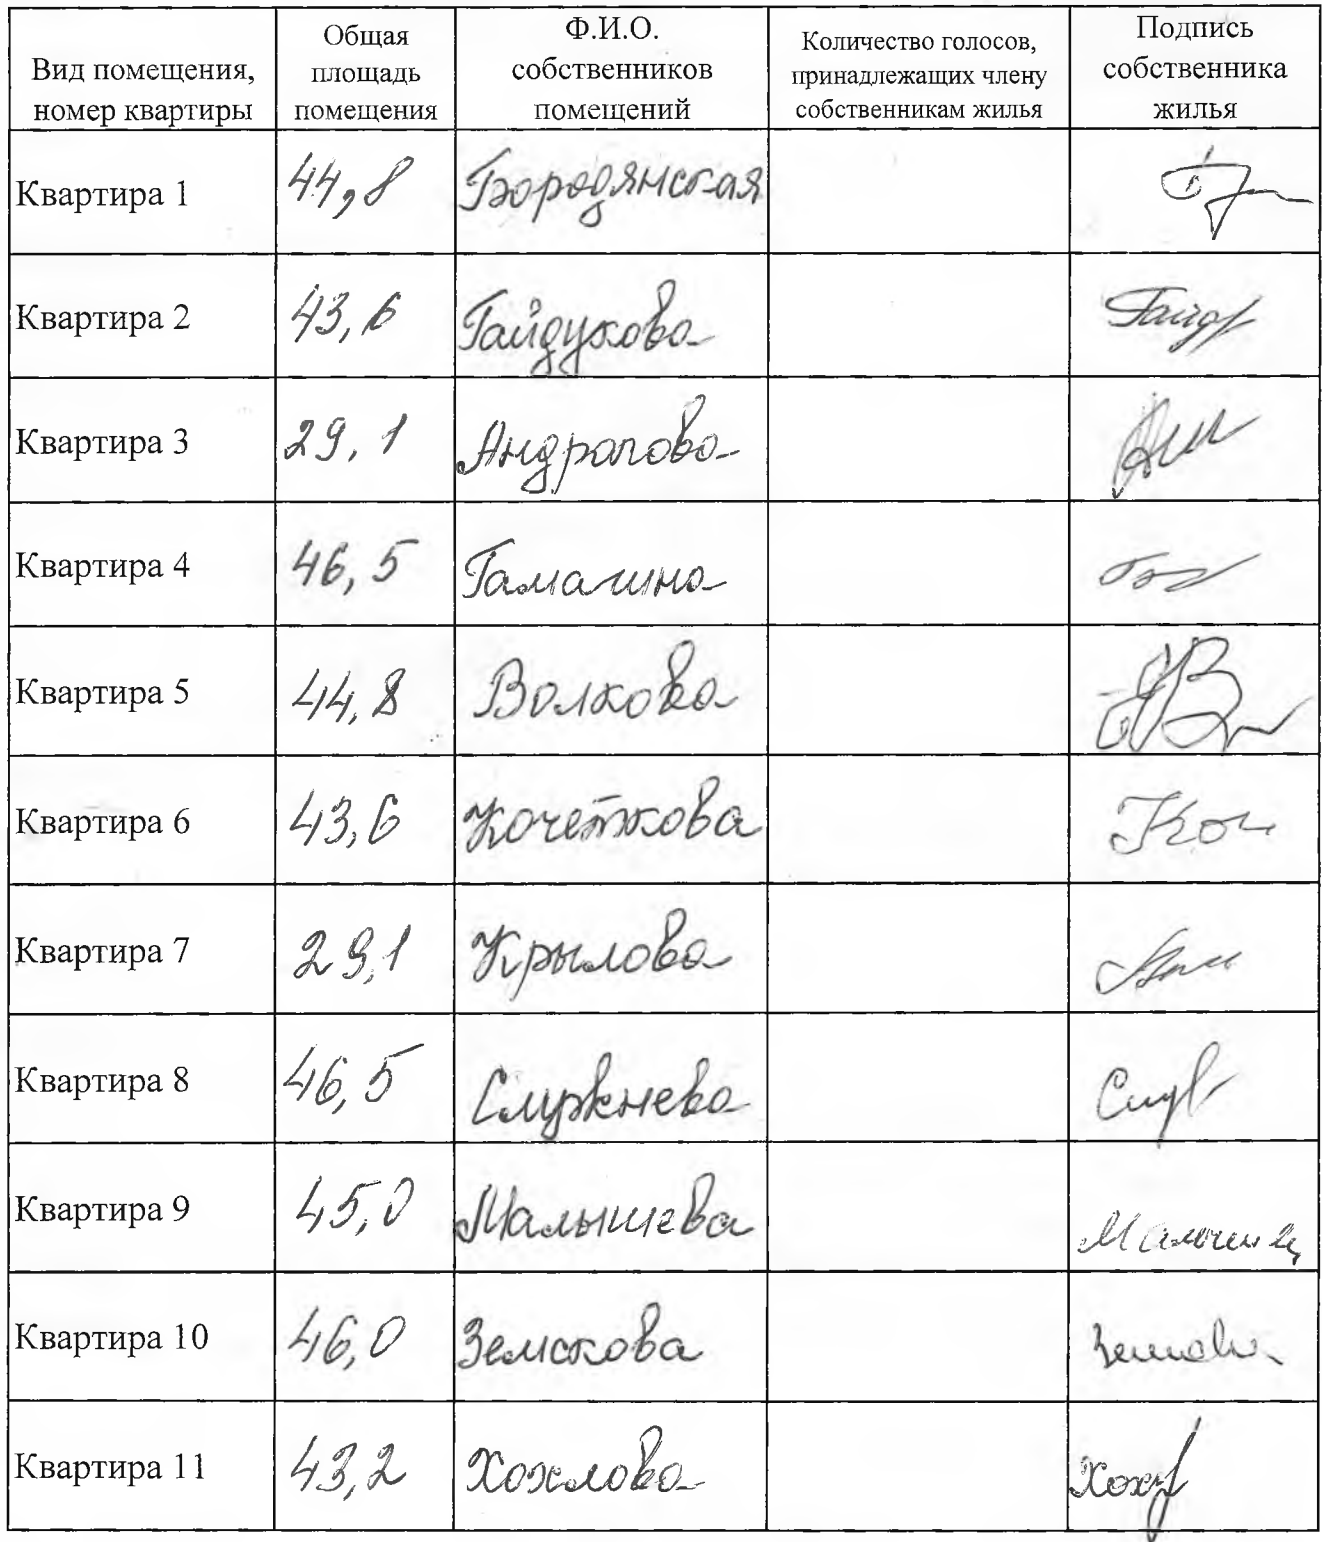 Вид помещения, номер квартиры
Общая площадь помещения
Ф.И.О. собственников помещений
Количество голосов, принадлежащих члену собственникам жилья
Подпись собственника жилья
Квартира 1 44,8 Бородянская
Квартира 2 43,6 Гайдукова Гайд
Квартира 3 29,1
Квартира 4 46,5
Квартира 5 44,8 Волкова
Квартира 6 43,6 Кочеткова Коч
Квартира 7 29,1 Крылова
Квартира 8 46,5 Служнева
Квартира 9 45,0 Малышева
Квартира 10 46,0 Земскова
Квартира 11 43,2 Хохлова Хох